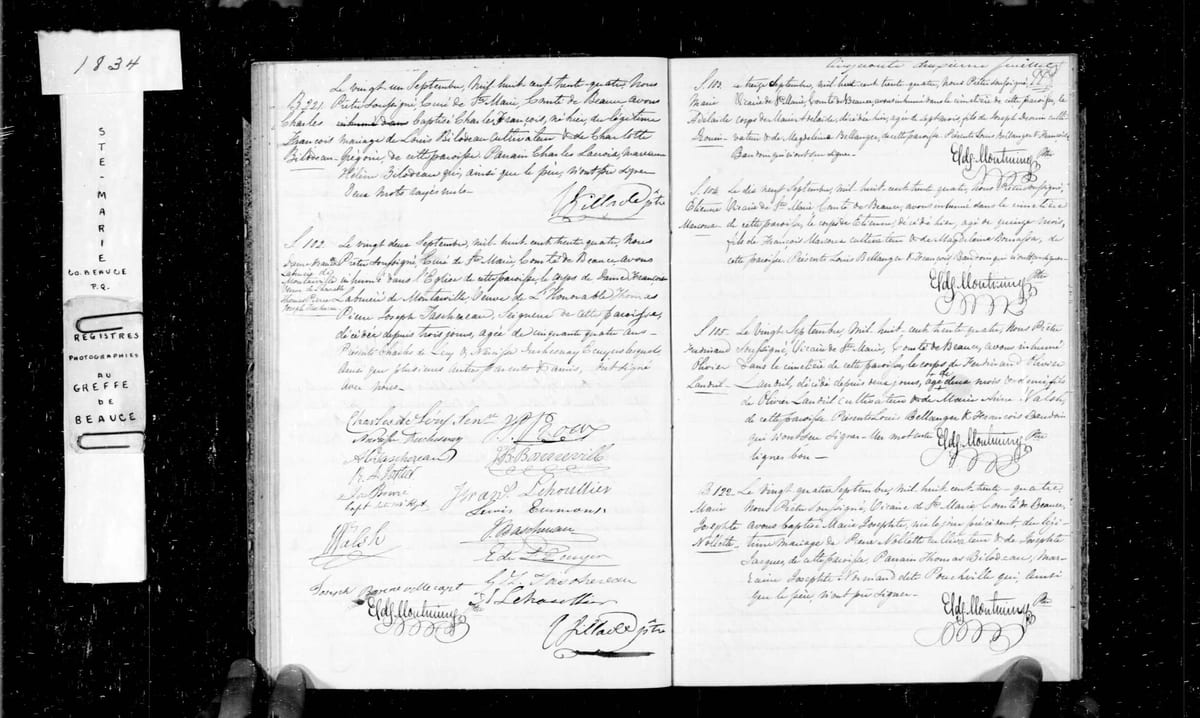 1834
STE-MARIE
CO. BEAUCE
P.Q.
REGISTRES
PHOTOGRAPHIES
AU
GREFFE
DE
BEAUCE
Le vingt un Septembre, Mil huit cent trente quatre, Nous
B 121 Prêtre Soussigné, Curé de Ste Marie, Comté de Beauce avons
Charles inhumé dans Baptisé Charles François, né hier, du légitime
François mariage de Louis Bilodeau Cultivateur & de Charlotte
Bilodeau Grégoire de cette paroisse. Parain Charles Lacroix, Maraine
Hélène Bilodeau qui, ainsi que le père, n'ont pu signer
Deux mots rayés nuls
Villade ptre
S. 102. Le vingt deux Septembre, mil huit cent trente quatre, Nous
Dame Françoise Prêtre Soussigné, Curé de Ste Marie, Comté de Beauce avons
inhumé dans l'Eglise de cette paroisse, le corps de Dame Françoise
Labruere de Montarville, Veuve de L'Honorable Thomas
Pierre Joseph Taschereau, Seigneur de cette paroisse,
décédée depuis trois jours, agée de cinquante quatre ans
Présents Charles de Lery & Narcisse Duchesnay Ecuyers lesquels
ainsi que plusieurs autres parents & amis, ont signé
avec nous
Charles de Léry
Duchesnay
Taschereau
J. P. Proulx
Bonneville
Lehoullier
Lewis Emmons
Walsh
Bonneville capt
Taschereau
Lehoullier
Eld. Montminy ptre
Villade ptre
Cinquante deuxieme feuillet
S. 103. Le treize Septembre, mil huit cent trente quatre, nous Prêtre Soussigné,
Marie Vicaire de Ste Marie, Comté de Beauce, avons inhumé dans le cimetière de cette paroisse, le
Adelaide corps de Marie Adelaide, décédée hier, agée de mois, fille de Joseph Drouin culti-
Drouin vateur & de Magdeleine Bellanger, de cette paroisse Présents Louis Bellanger & François
Baudoin qui n'ont su signer
Eld. Montminy Ptre
S. 104 Le dix neuf Septembre, Mil huit-cent trente quatre, Nous Prêtre Soussigné,
Etienne Vicaire de Ste Marie Comté de Beauce, avons inhumé dans le cimetière
Marcoux de cette paroisse, le corps de Etienne, décédé hier, agé de quinze mois,
fils de François Marcoux cultivateur & de Magdeleine Bonassa, de
cette paroisse. Présents Louis Bellanger & François Baudoin qui n'ont su signer
Eld. Montminy Ptre
S. 105. Le Vingt Septembre, Mil huit cent trente quatre, Nous Prêtre
Ferdinand Soussigné, Vicaire de Ste Marie, Comté de Beauce, avons inhumé
Olivier dans le cimetière de cette paroisse, le corps de Ferdinand Olivier
Landril Landril, décédé depuis deux jours, agé de deux mois & demi, fils
de Olivier Landril cultivateur & de Marie Anne Walsh,
de cette paroisse Présents Louis Bellanger & François Baudoin
qui n'ont su signer Un mot entre
lignes bon
Eld. Montminy Ptre
B 122 Le vingt quatre Septembre, mil huit cent trente-quatre
Marie Nous Prêtre Soussigné, Vicaire de Ste Marie, Comté de Beauce,
Josephte avons baptisé Marie Josephte, née le jour précédent, du légi-
Nollette time mariage de Pierre Nollette cultivateur & de Josephte
Jacques, de cette paroisse Parain Thomas Bilodeau, Mar-
raine Josephte Normand, qui, ainsi
que le père, n'ont pu signer
Eld. Montminy Ptre